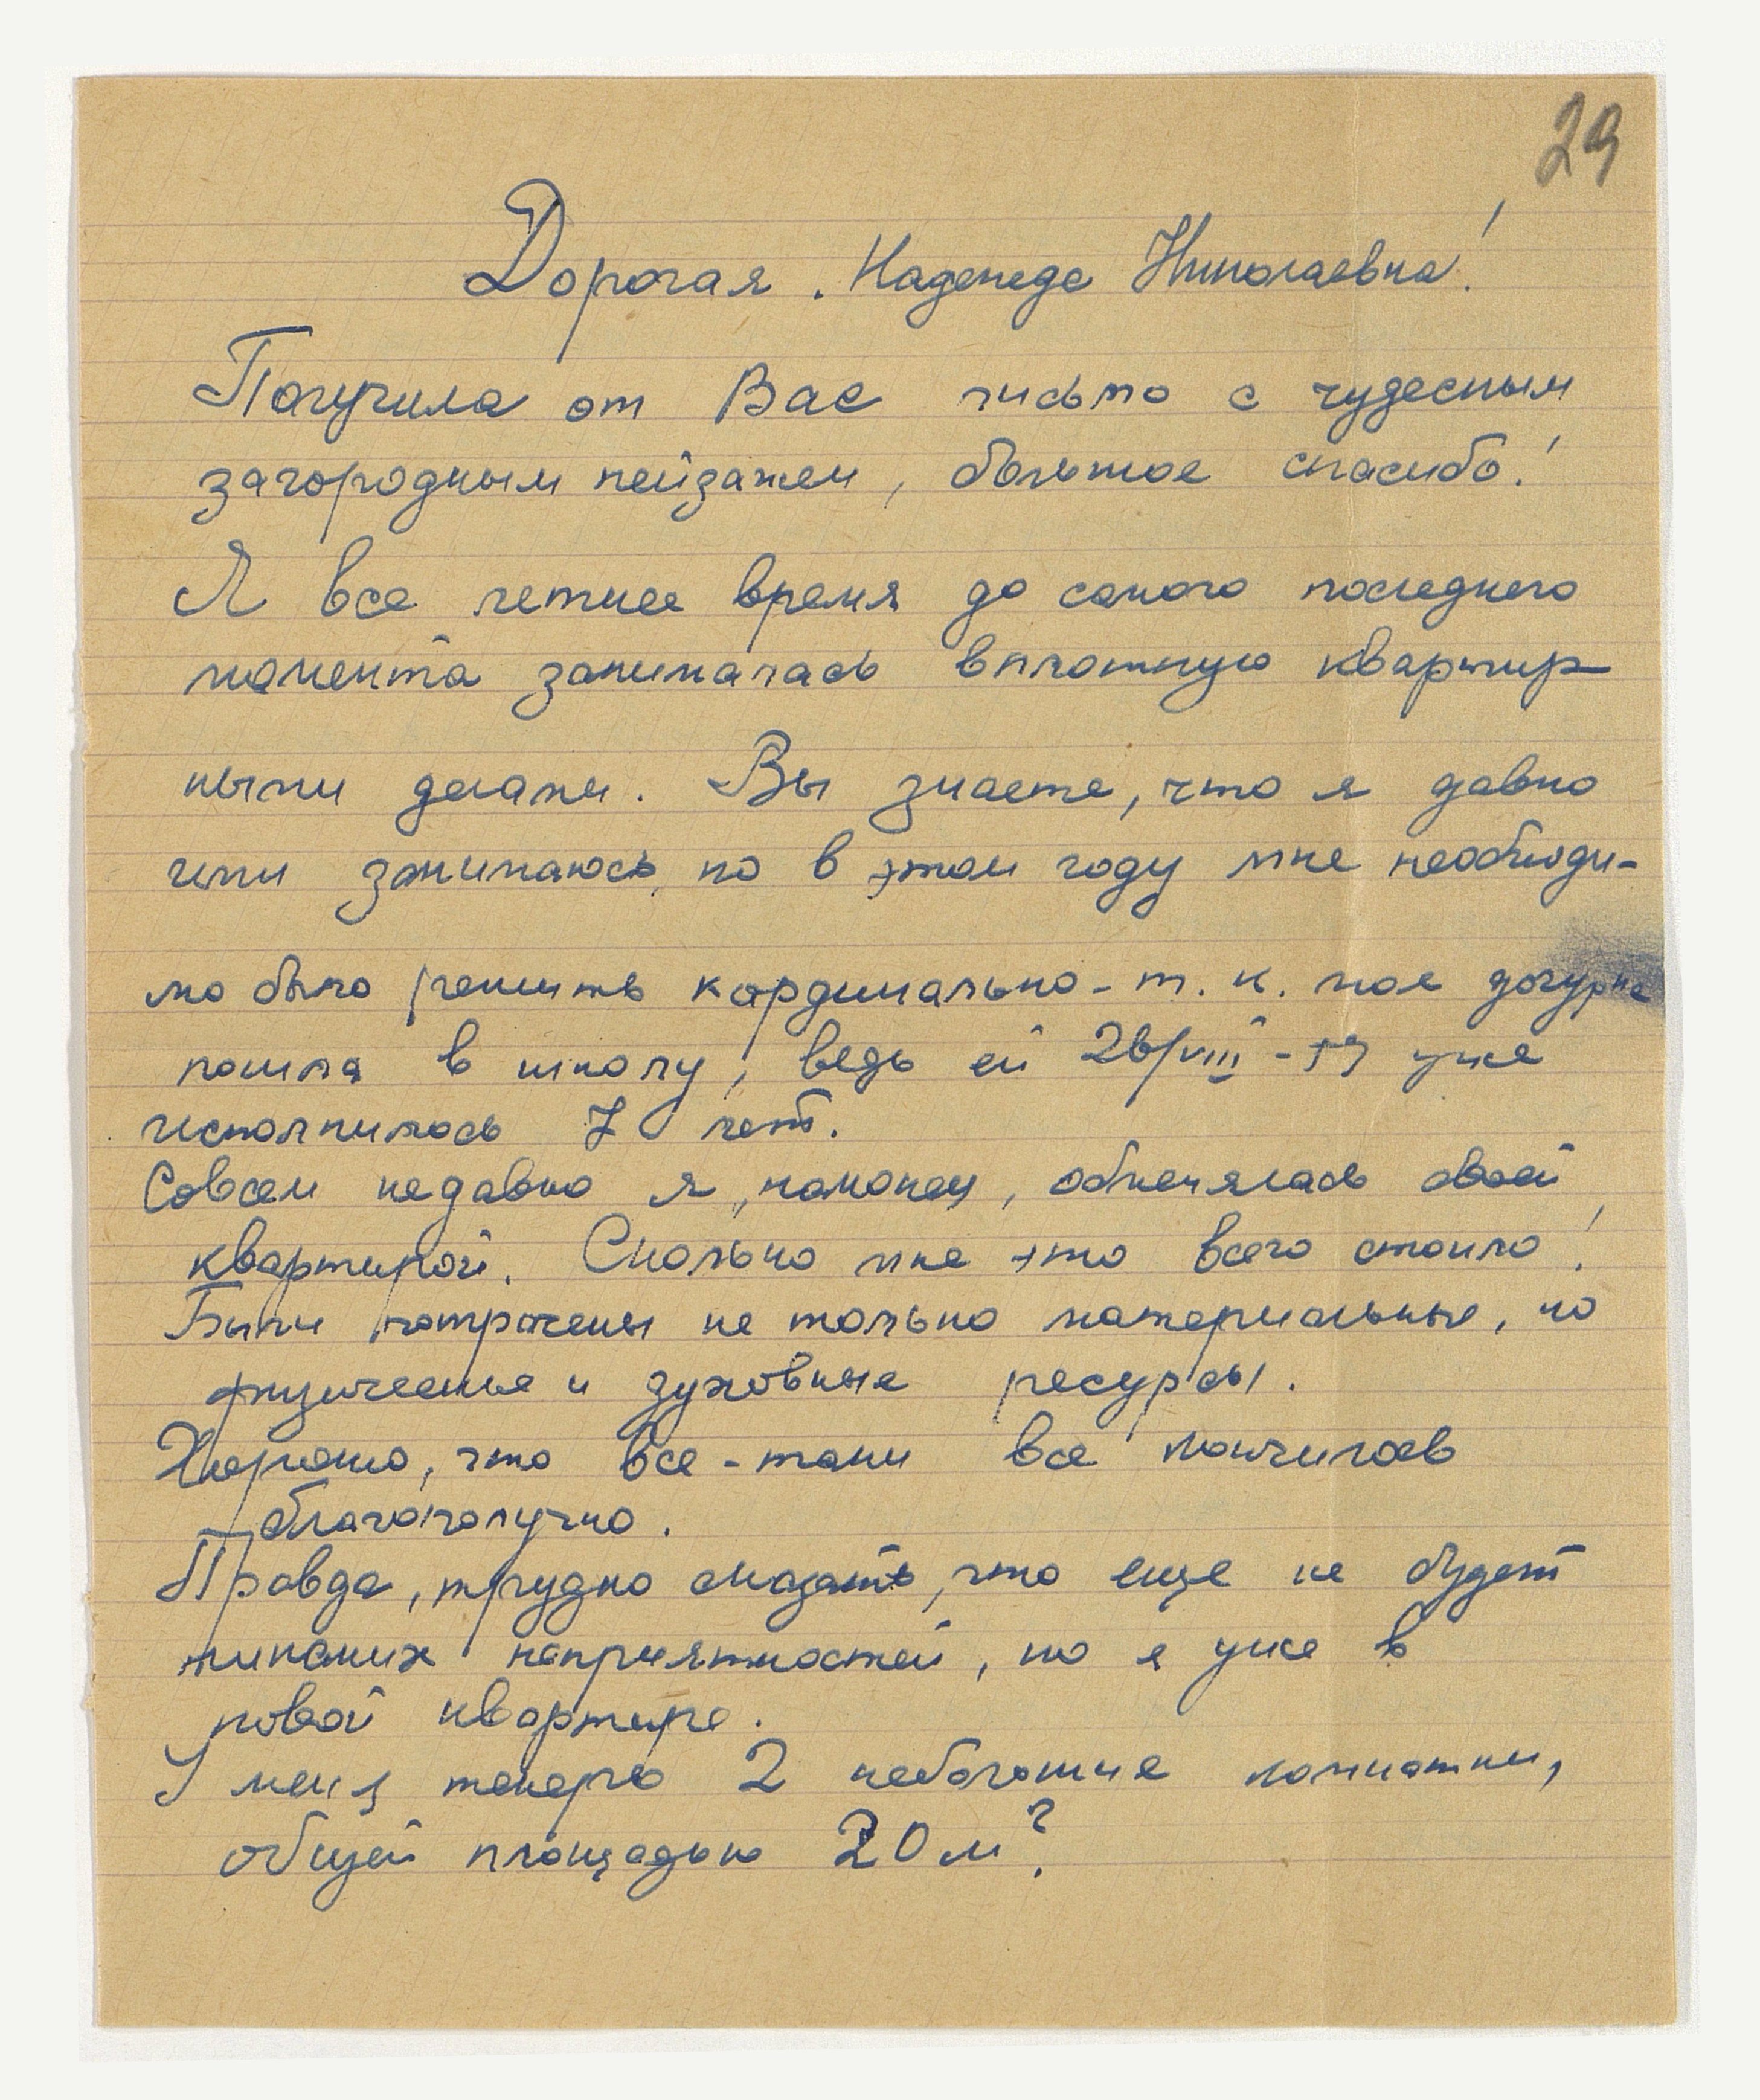 29
Дорогая Надежда Николаевна!
Получила от Вас письмо с чудесным
загородным пейзажем, большое спасибо!
Я все летнее время до самого последнего
момента занималась вплотную квартир
ными делами. Вы знаете, что я давно
ими занимаюсь, но в этом году мне необходи-
мо было решить кординально - т. к. моя дочурка
пошла в школу, ведь ей 26/VIII - уже
исполнилось 7 лет.
Совсем недавно я, наконец, обменялась своей
квартирой. Сколько мне это всего стоило!
Были потрачены не только материальные, но
физические и духовные ресурсы.
Хорошо, что все-таки все кончилось
благополучно.
Правда, трудно сказать, что еще не будет
никаких неприятностей, но я уже в
новой квартире.
У меня теперь 2 небольшие комнатки,
общей площадью 20 м².